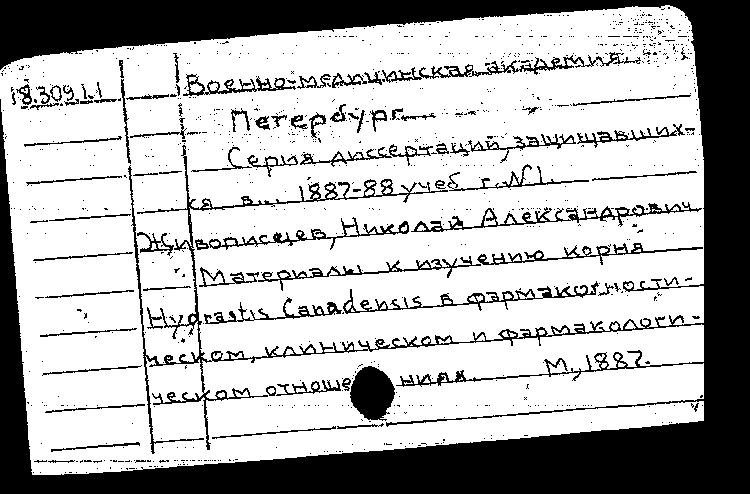 18.309.1.1
Военно-медицинская академия.
Петербург.
Серия диссертаций, защищавших-
ся в... 1887-88 учеб. г. №1.
Живописцев, Николай Александрович
Материалы к изучению корня
Hydrastis Canadensis в фармакогности-
ческом, клиническом и фармакологи-
ческом отношениях. М., 1887.